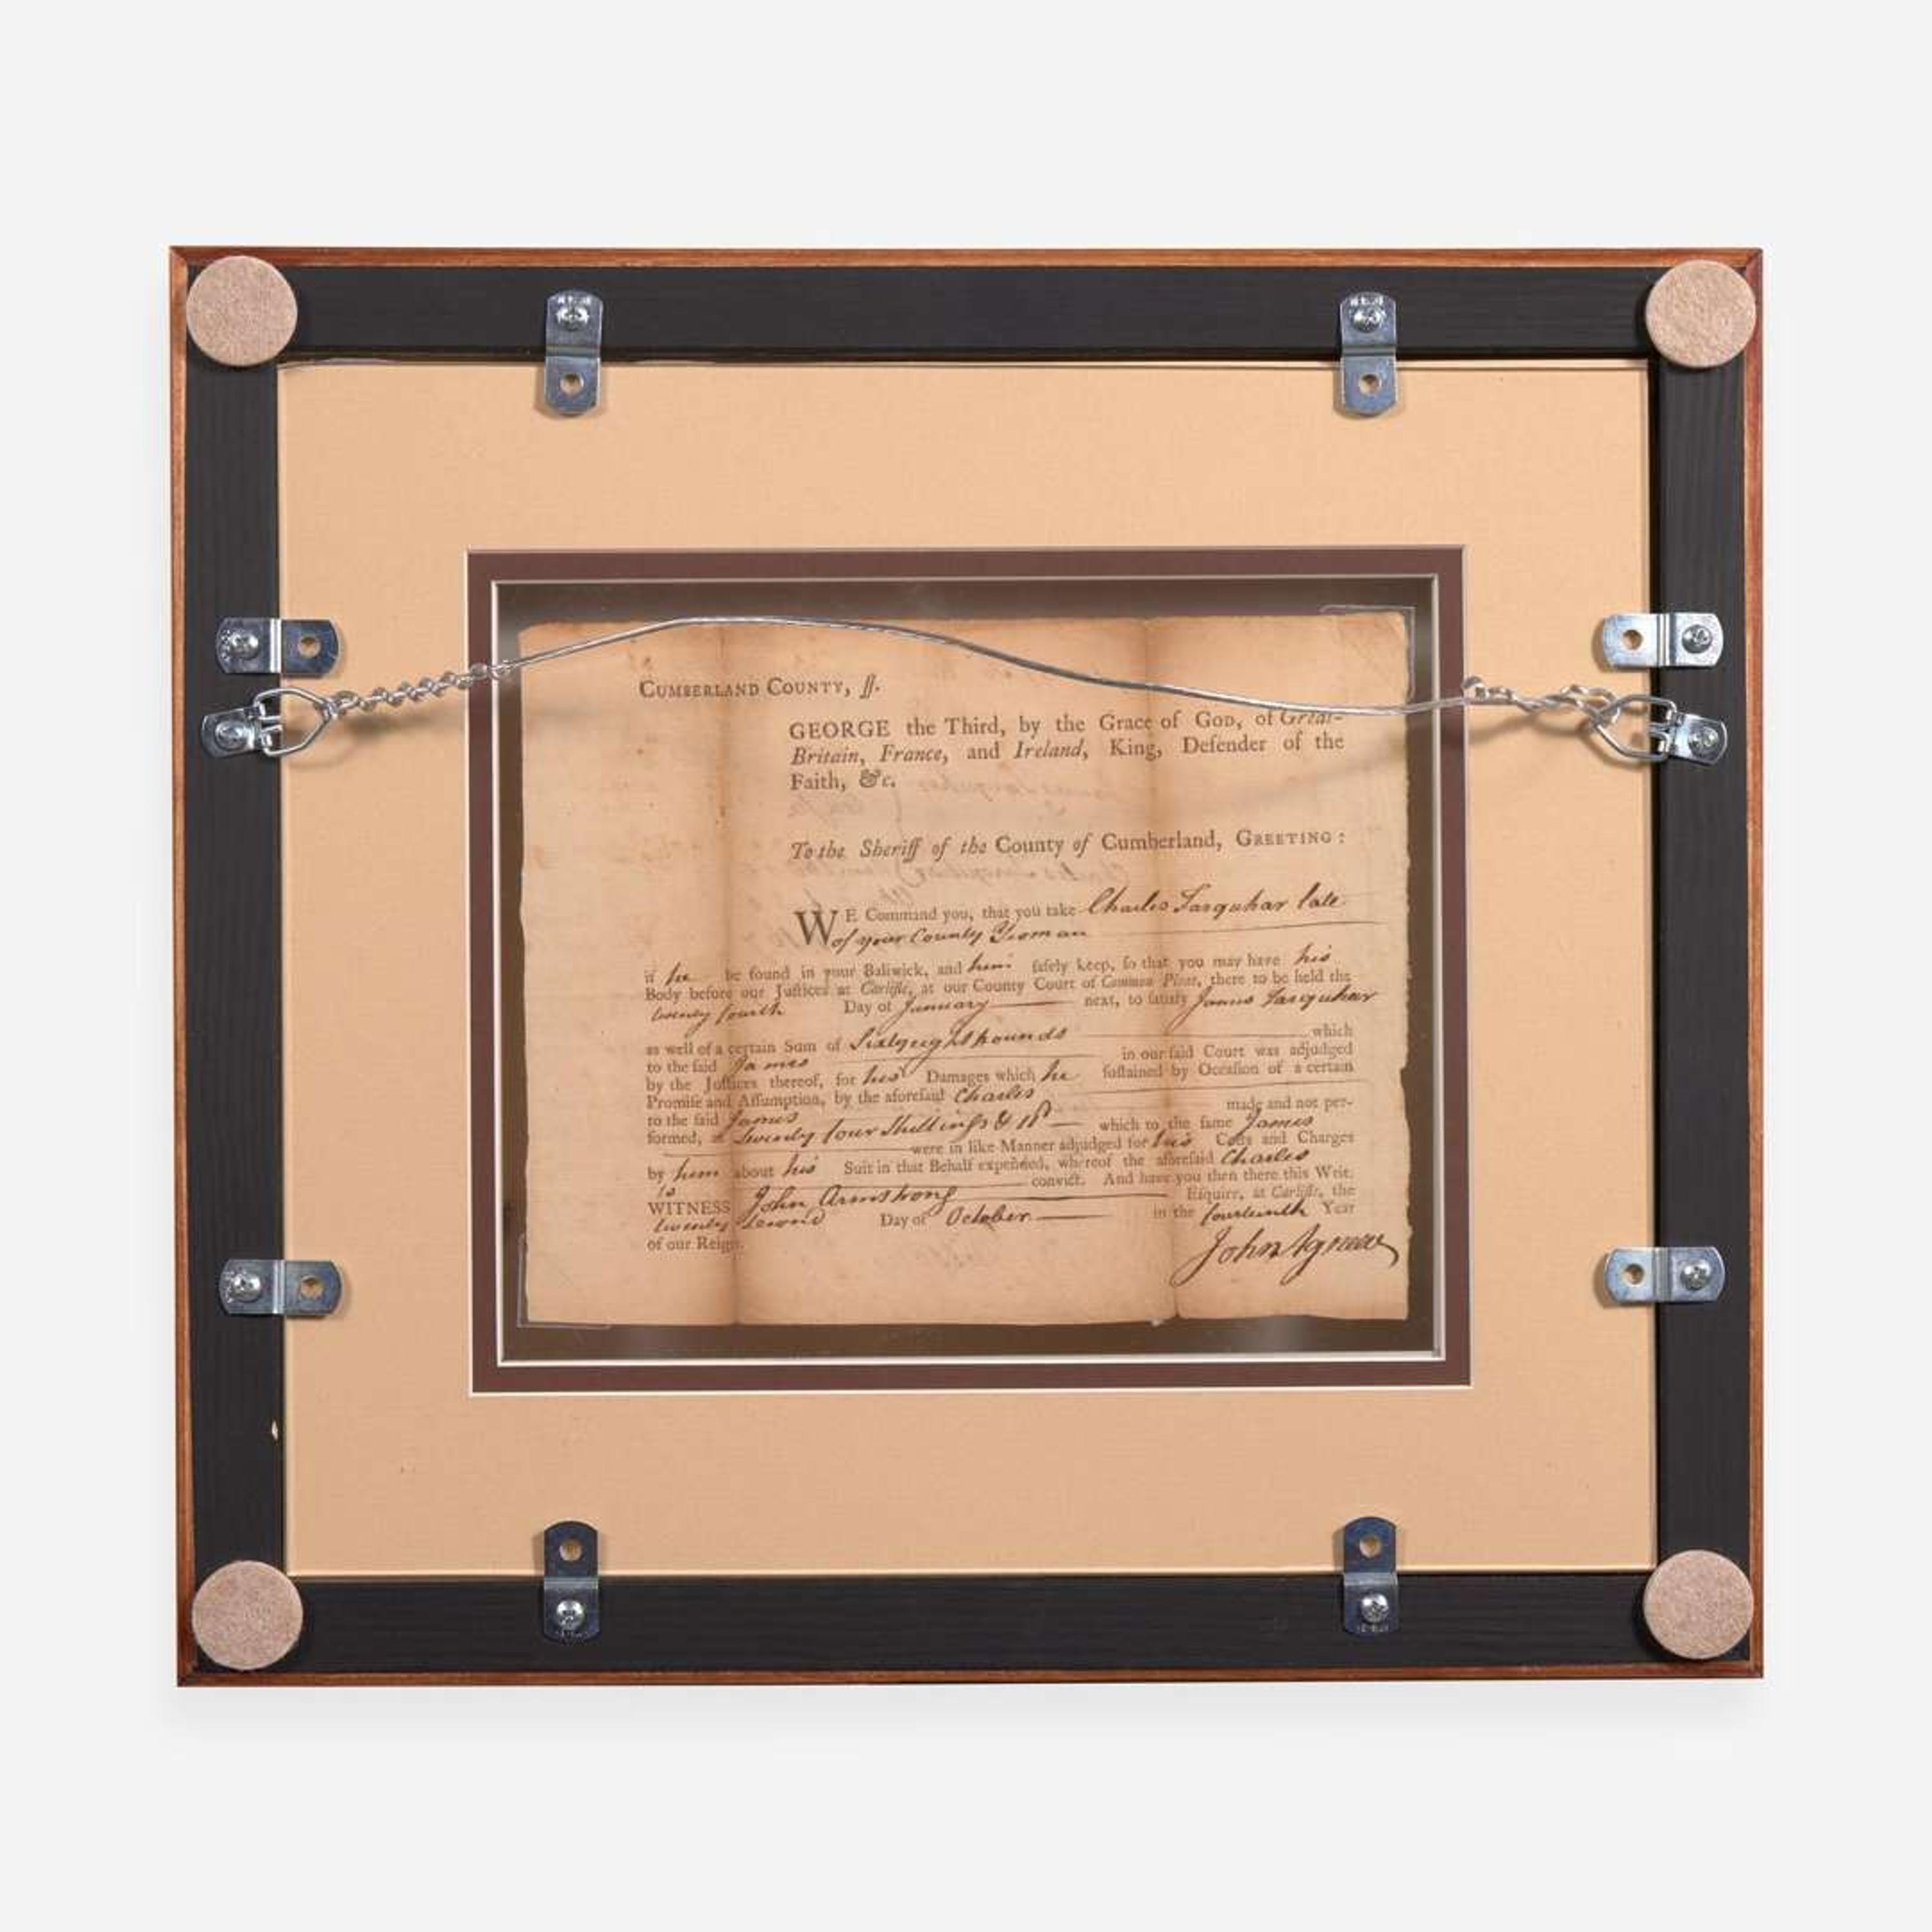 CUMBERLAND COUNTY, ſſ.
GEORGE the Third, by the Grace of GOD, of Great-
Britain, France, and Ireland, King, Defender of the
Faith, &c.
To the Sheriff of the County of Cumberland, GREETING:
WE Command you, that you take Charles Farquhar late
of your County Yeoman
if he be found in your Bailiwick, and him ſafely keep, ſo that you may have his
Body before our Juſtices at Carliſle, at our County Court of Common Pleas, there to be held the
twenty fourth Day of January next, to ſatisfy James Farquhar
as well of a certain Sum of Sixtyeight pounds which
to the ſaid James in our ſaid Court was adjudged
by the Juſtices thereof, for his Damages which he ſuſtained by Occaſion of a certain
Promiſe and Aſſumption, by the aforeſaid Charles
to the ſaid James made and not per-
formed, as twenty four Shillings & which to the ſame James
were in like Manner adjudged for his Coſts and Charges
by him about his Suit in that Behalf expended, whereof the aforeſaid Charles
is convict. And have you then there this Writ.
WITNESS John Armstrong Eſquire, at Carliſle, the
twenty second Day of October in the fourteenth Year
of our Reign.
John Agnew